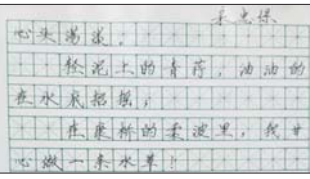 心头荡漾。
软泥上的青荇，油油的
在水底招摇；
在康桥的柔波里，我甘
心做一条水草！